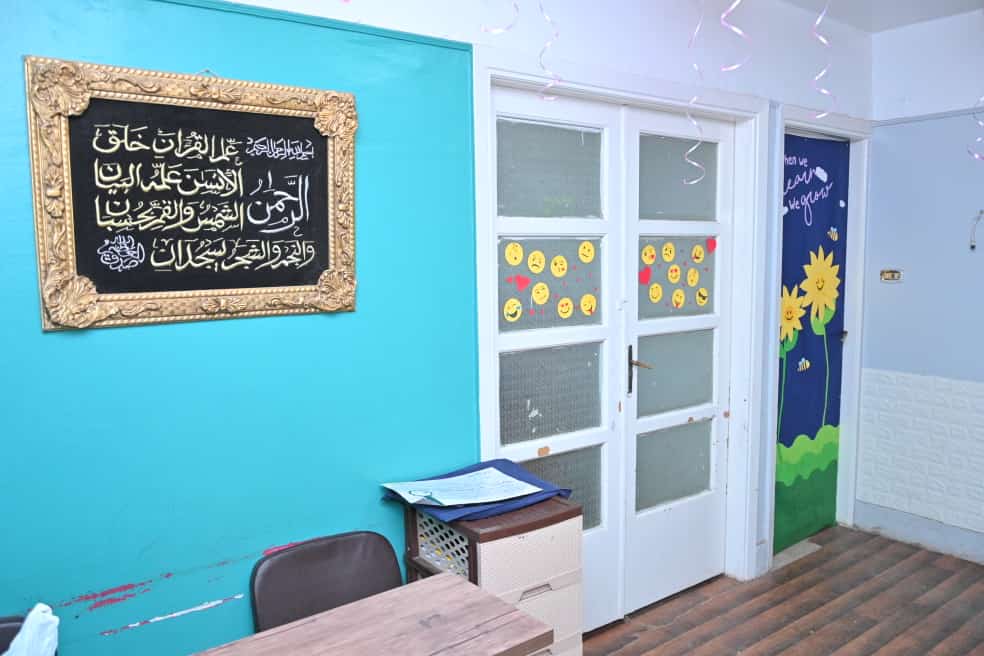 بسم الله الرحمن الرحيم علم القران خلق
الرحمن الأنسن علمه البيان
الشمس والقمر بحسبان
والنجم والشجر يسجدان صدق الله العظيم
hen we
earn
we
grow